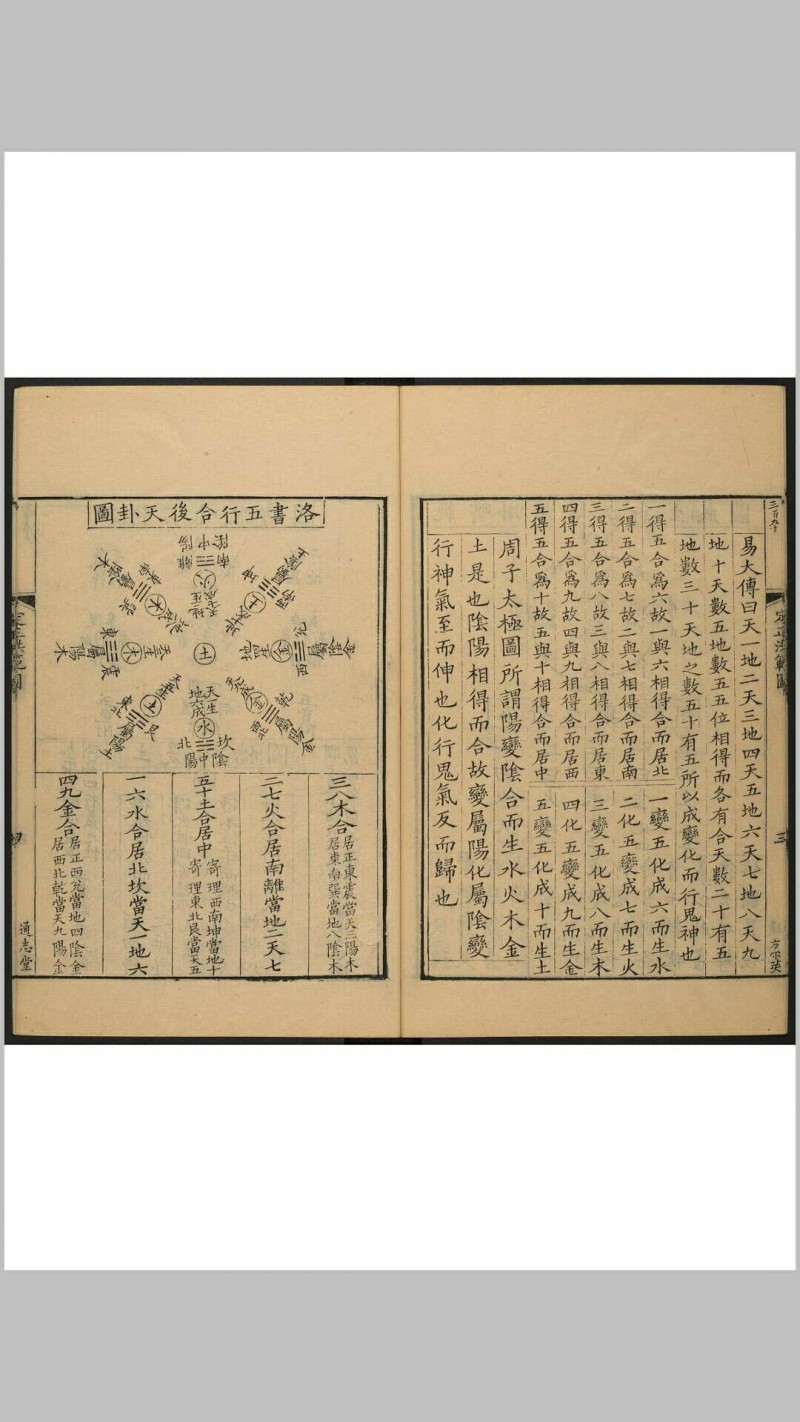 易大傳曰天一地二天三地四天五地六天七地八天九
地十天數五地數五五位相得而各有合天數二十有五
地數三十天地之數五十有五所以成變化而行鬼神也
一得五合爲六故一與六相得合而居北
一變五化成六而生水
二得五合爲七故二與七相得合而居南
二化五變成七而生火
三得五合爲八故三與八相得合而居東
三變五化成八而生木
四得五合爲九故四與九相得合而居西
四化五變成九而生金
五得五合爲十故五與十相得合而居中
五變五化成十而生土
周子太極圖所謂陽變陰合而生水火木金
土是也陰陽相得而合故變屬陽化屬陰變
行神氣至而伸也化行鬼氣反而歸也
三
洛書五行合後天卦圖
離
南
中
陰
陽
火
坤
土
兌
西
金
乾
西北
金
坎
北
中
陰
陽
水
天一生
地六成
艮
東北
土
震
東
木
巽
東南
木
土
三八木合
居正東震當天三陽木
居東南巽當地八陰木
二七火合居南離當地二天七
五十土合居中
寄理西南坤當地十
寄理東北艮當天五
一六水合居北坎當天一地六
四九金合
居正西兌當地四陰金
居西北乾當天九陽金
定正洪範圖
四
通志堂